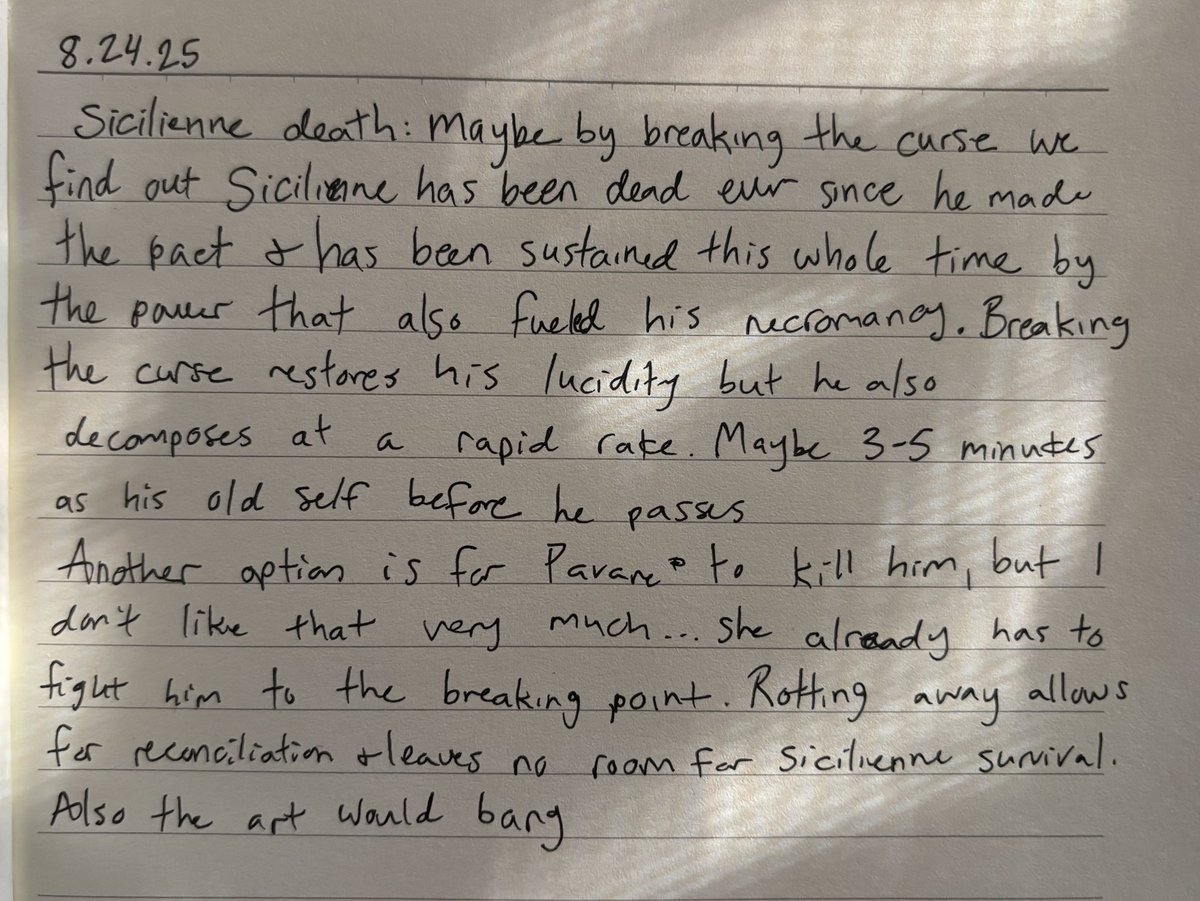 8.24.25
Sicilienne death: Maybe by breaking the curse we
find out Sicilienne has been dead ever since he made
the pact & has been sustained this whole time by
the power that also fueled his necromancy. Breaking
the curse restores his lucidity but he also
decomposes at a rapid rate. Maybe 3-5 minutes
as his old self before he passes
Another option is for Pavane to kill him, but I
don't like that very much... she already has to
fight him to the breaking point. Rotting away allows
for reconciliation & leaves no room for Sicilienne survival.
Also the art would bang